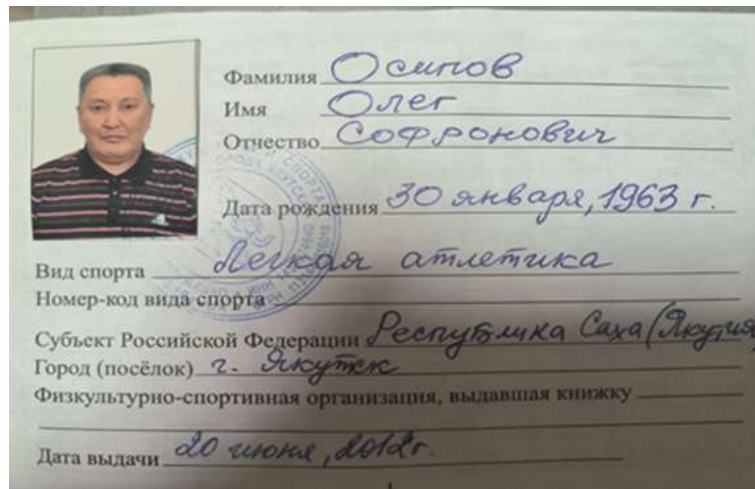 Фамилия Осипов
Имя Олег
Отчество Софронович
Дата рождения 30 января, 1963 г.
Вид спорта Легкая атлетика
Номер-код вида спорта
Субъект Российской Федерации Республика Саха (Якутия)
Город (посёлок) г. Якутск
Физкультурно-спортивная организация, выдавшая книжку
Дата выдачи 20 июня, 2012г.